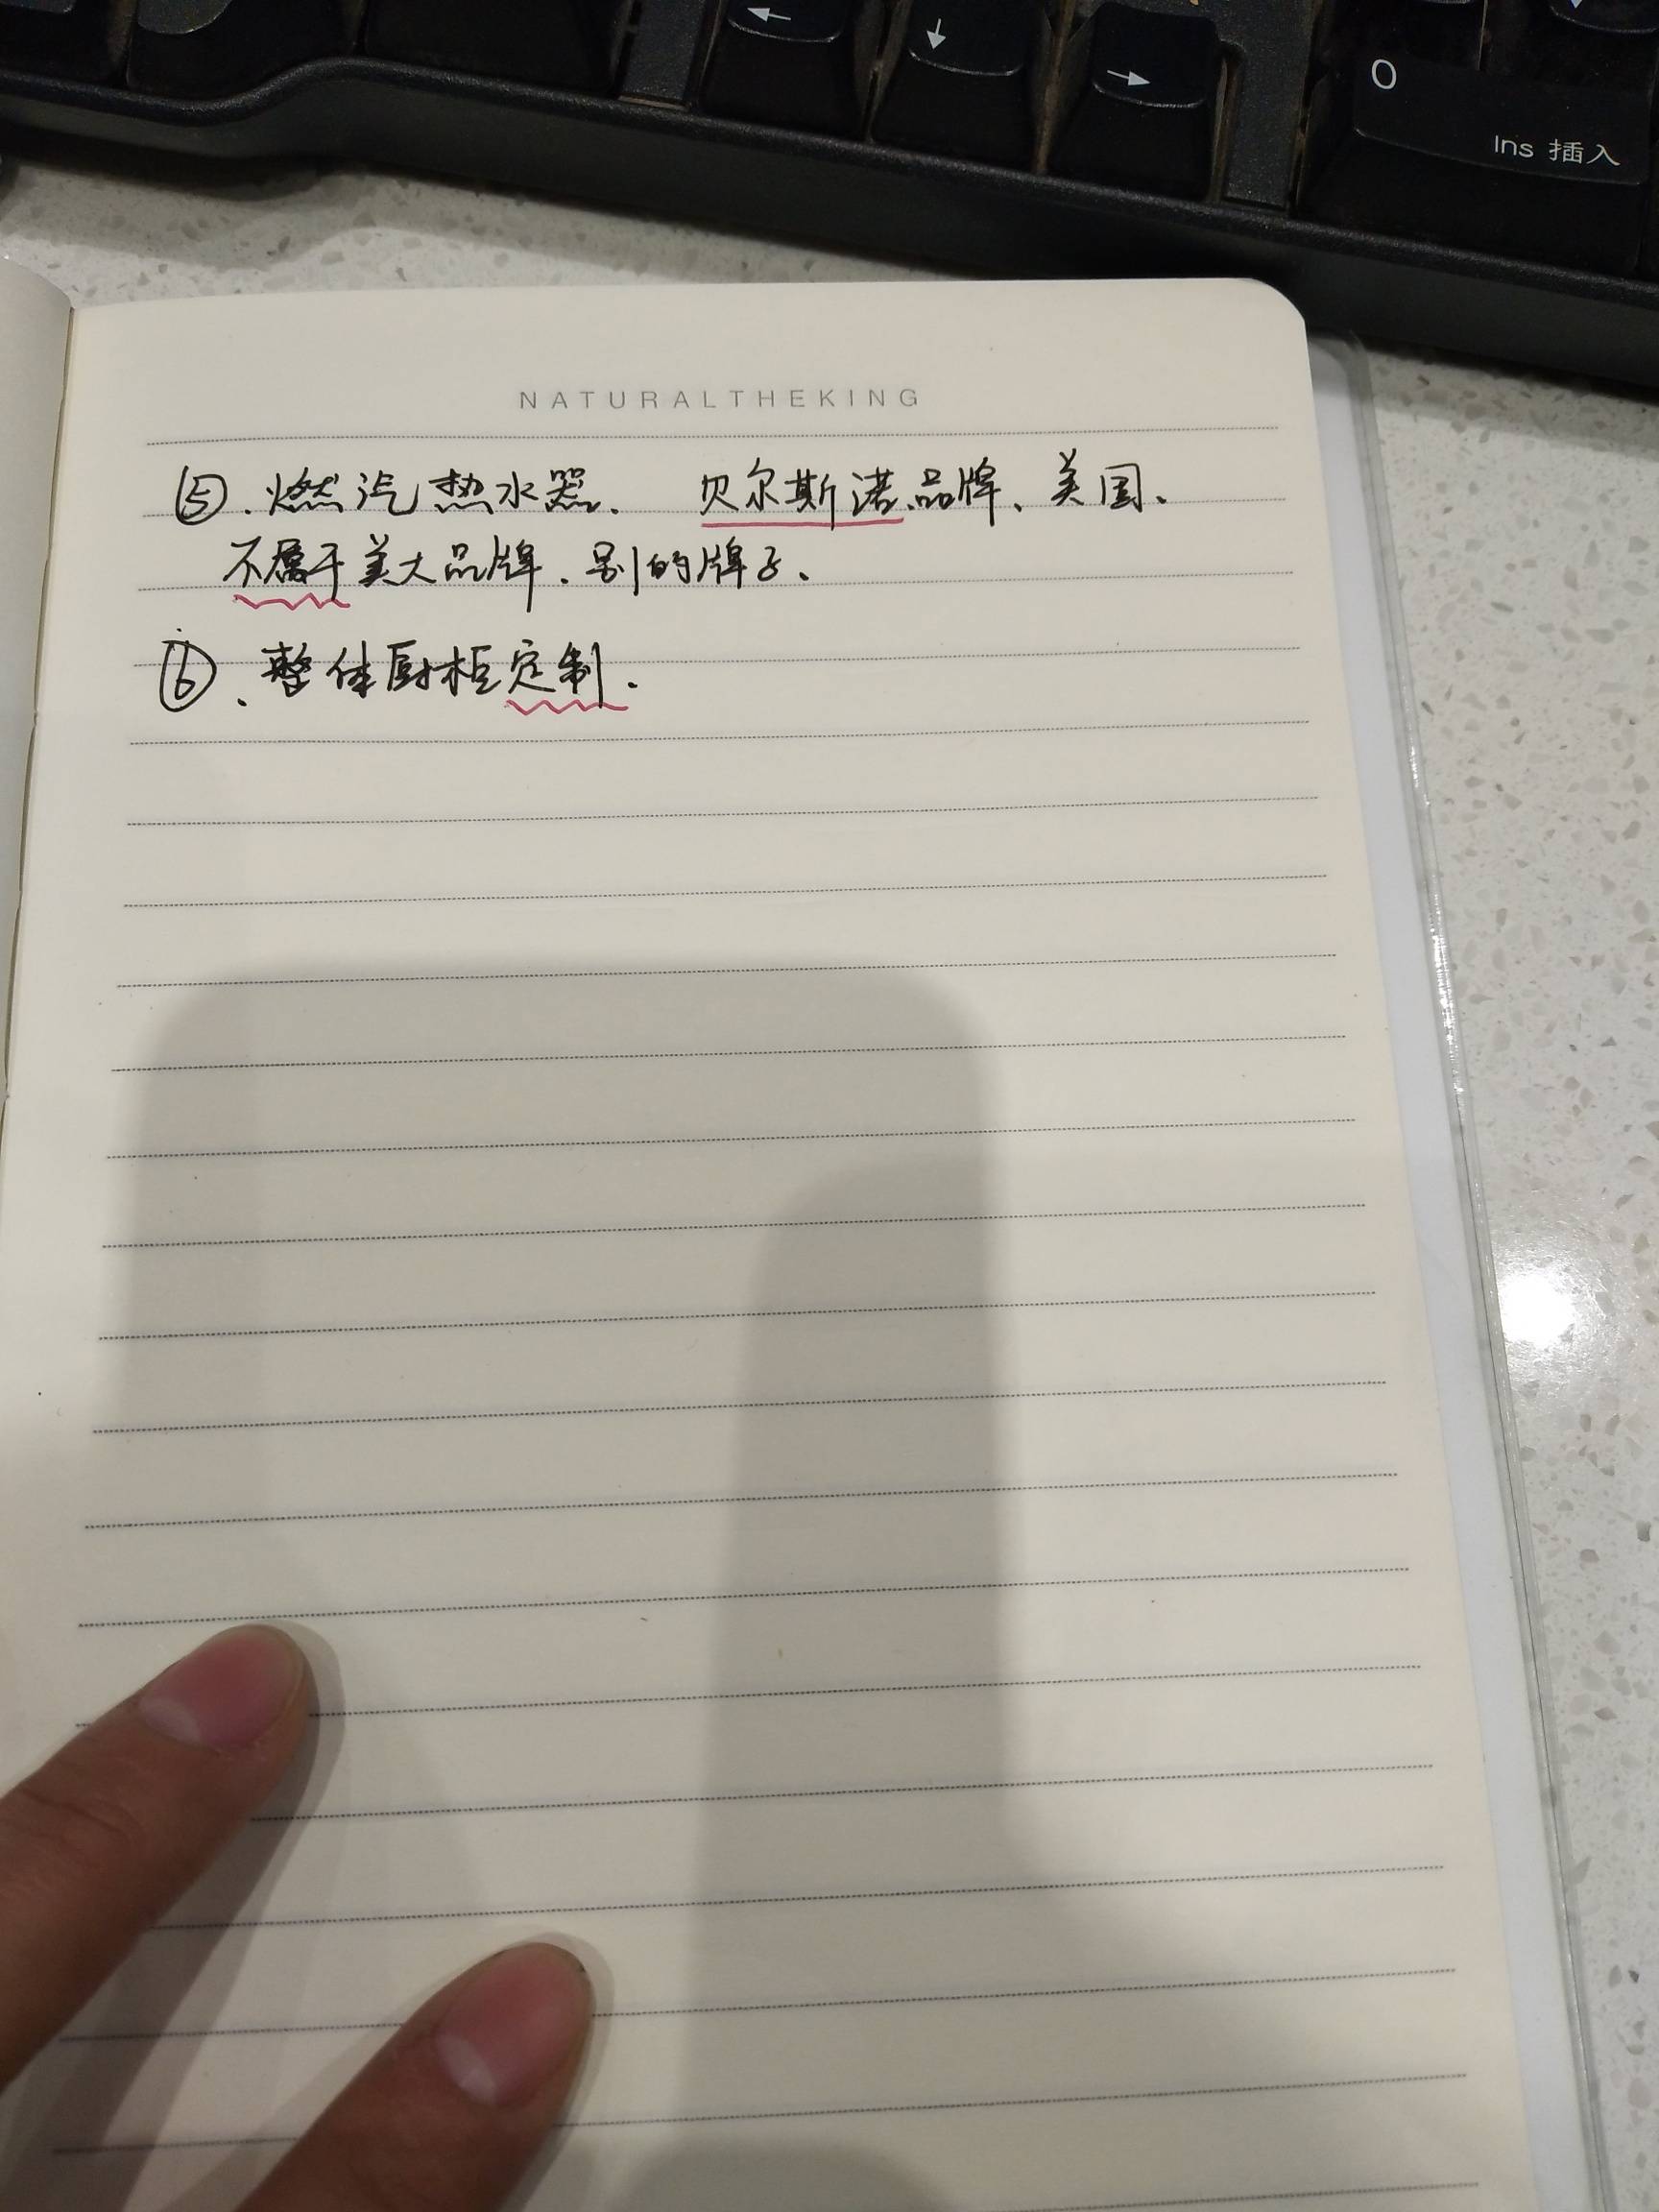 ←
↓
→
0
Ins 插入
NATURALTHEKING
⑤、燃汽热水器. 贝尔斯诺品牌、美国、
不属于美大品牌、别的牌子、
⑥、整体厨柜定制.